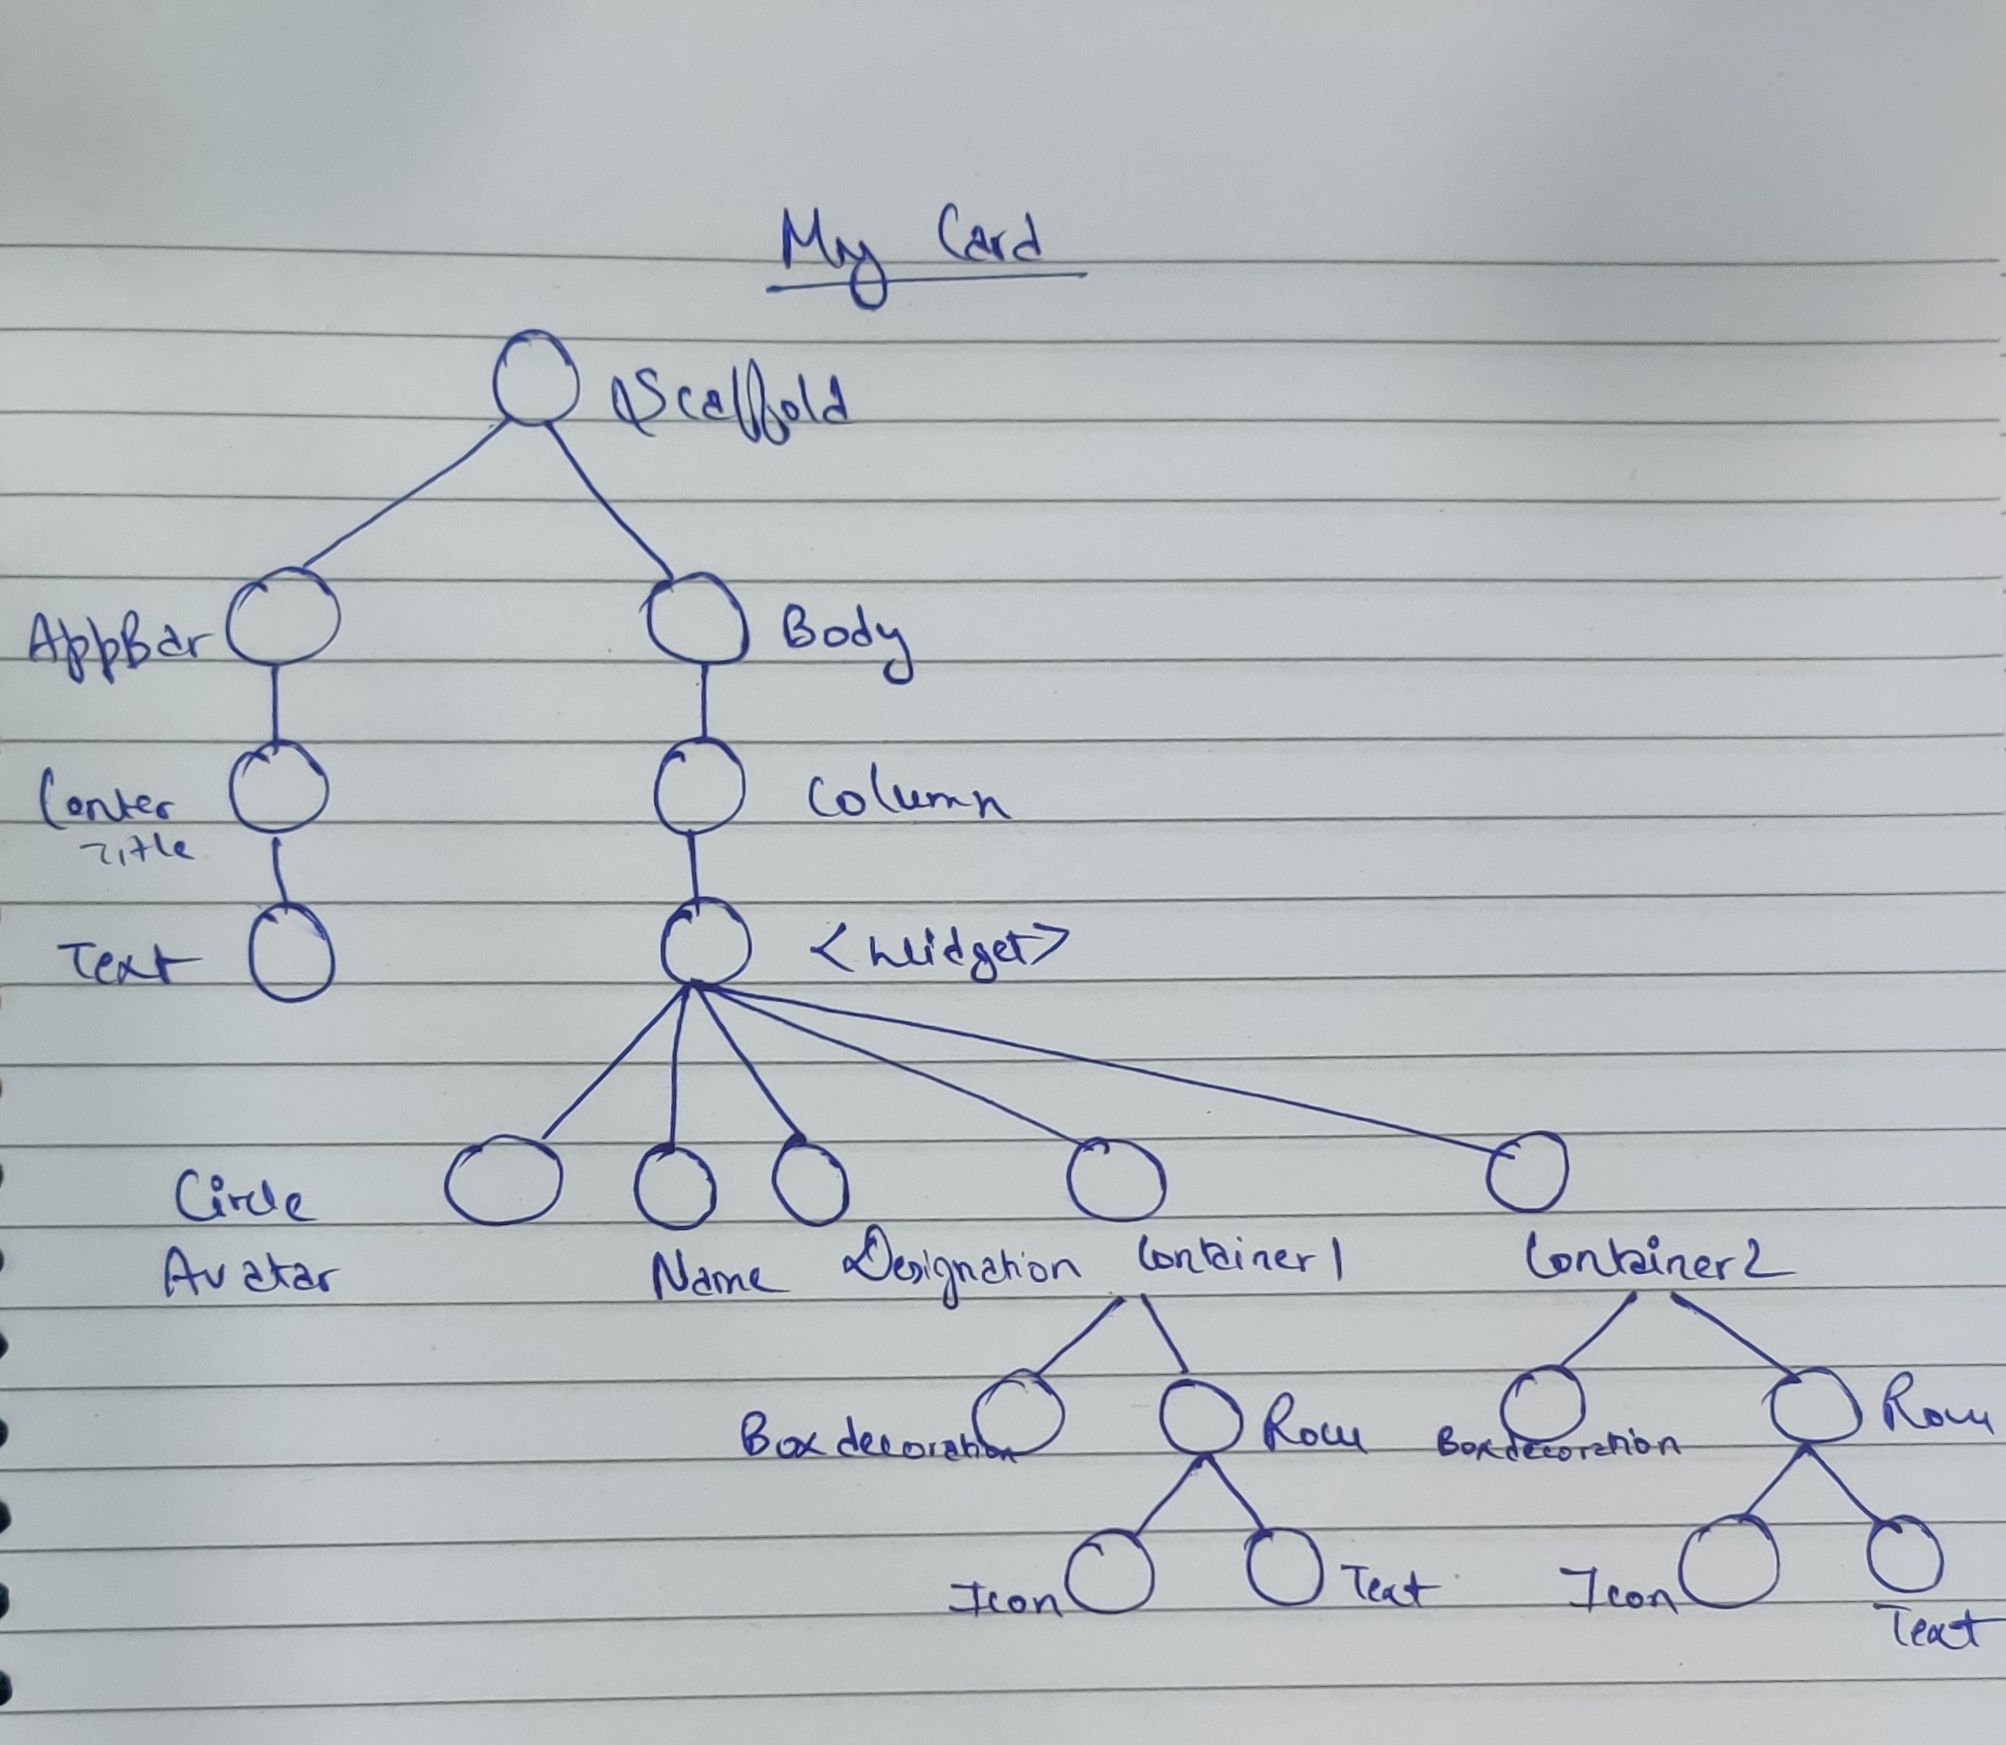 My Card
Scaffold
AppBar Body
Center Column
Title
Text <Widget>
Circle
Avatar Name Designation Container1 Container2
Box decoration Row Boxdecoration Row
Icon Text Icon
Text